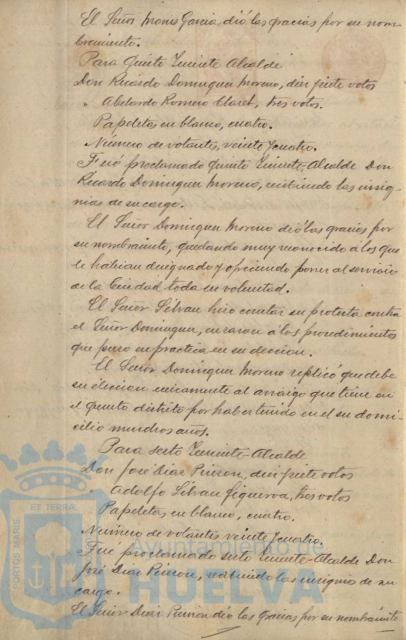 El Señor Mons Garcia, dió las gracias por su nom-
bramiento.
Para Quinto Teniente Alcalde
Don Ricardo Dominguez Moreno, diez y siete votos
" Abelardo Romero Claret, tres votos.
Papeletas en blanco, cuatro.
Número de votantes, veinte y cuatro.
Fué proclamado Quinto Teniente-Alcalde Don
Ricardo Dominguez Moreno, recibiendo las insig-
nias de su cargo.
El Señor Dominguez Moreno dió las gracias por
su nombramiento, quedando muy reconocido á los que
le habian designado y ofreciendo poner al servicio
de la Ciudad toda su voluntad.
El Señor Silvan hizo constar su protesta contra
el Señor Dominguez, en razon á los procedimientos
que puso en practica en su eleccion.
El Señor Dominguez Moreno replicó que debe
su eleccion unicamente al arraigo que tiene en
el quinto distrito por haber tenido en el su domi-
cilio muchos años.
Para sexto Teniente-Alcalde
Don José Diaz Pinzon, diez y siete votos
" Adolfo Silvan Figueroa, tres votos
Papeletas en blanco, cuatro.
Número de votantes veinte y cuatro.
Fué proclamado sexto Teniente-Alcalde Don
José Diaz Pinzon, recibiendo las insignias de su
cargo.
El Señor Diaz Pinzon dió las gracias por su nombramiento
PORTUS MARIS
ET TERRÆ
HUELVA